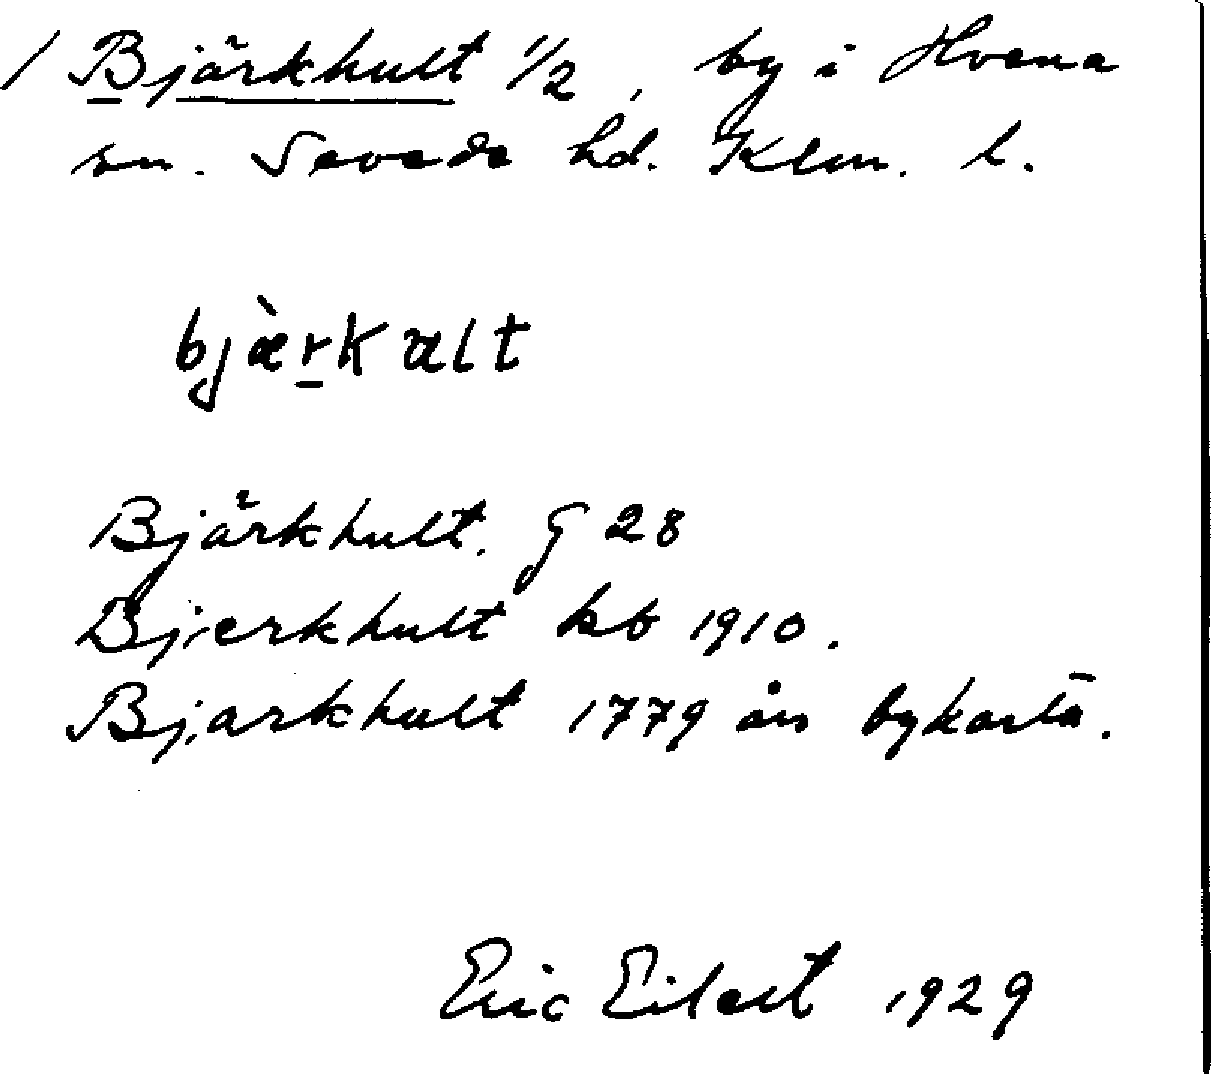 / Bjärkhult 1/2, by i Hvena
sn. Sevede hd. Klm. l.
bjæ̀rkælt
Bjärkhult. G 28
Bjerkhult kb 1910.
Bjarkhult 1779 års bykarta.
Eric Eilert 1929